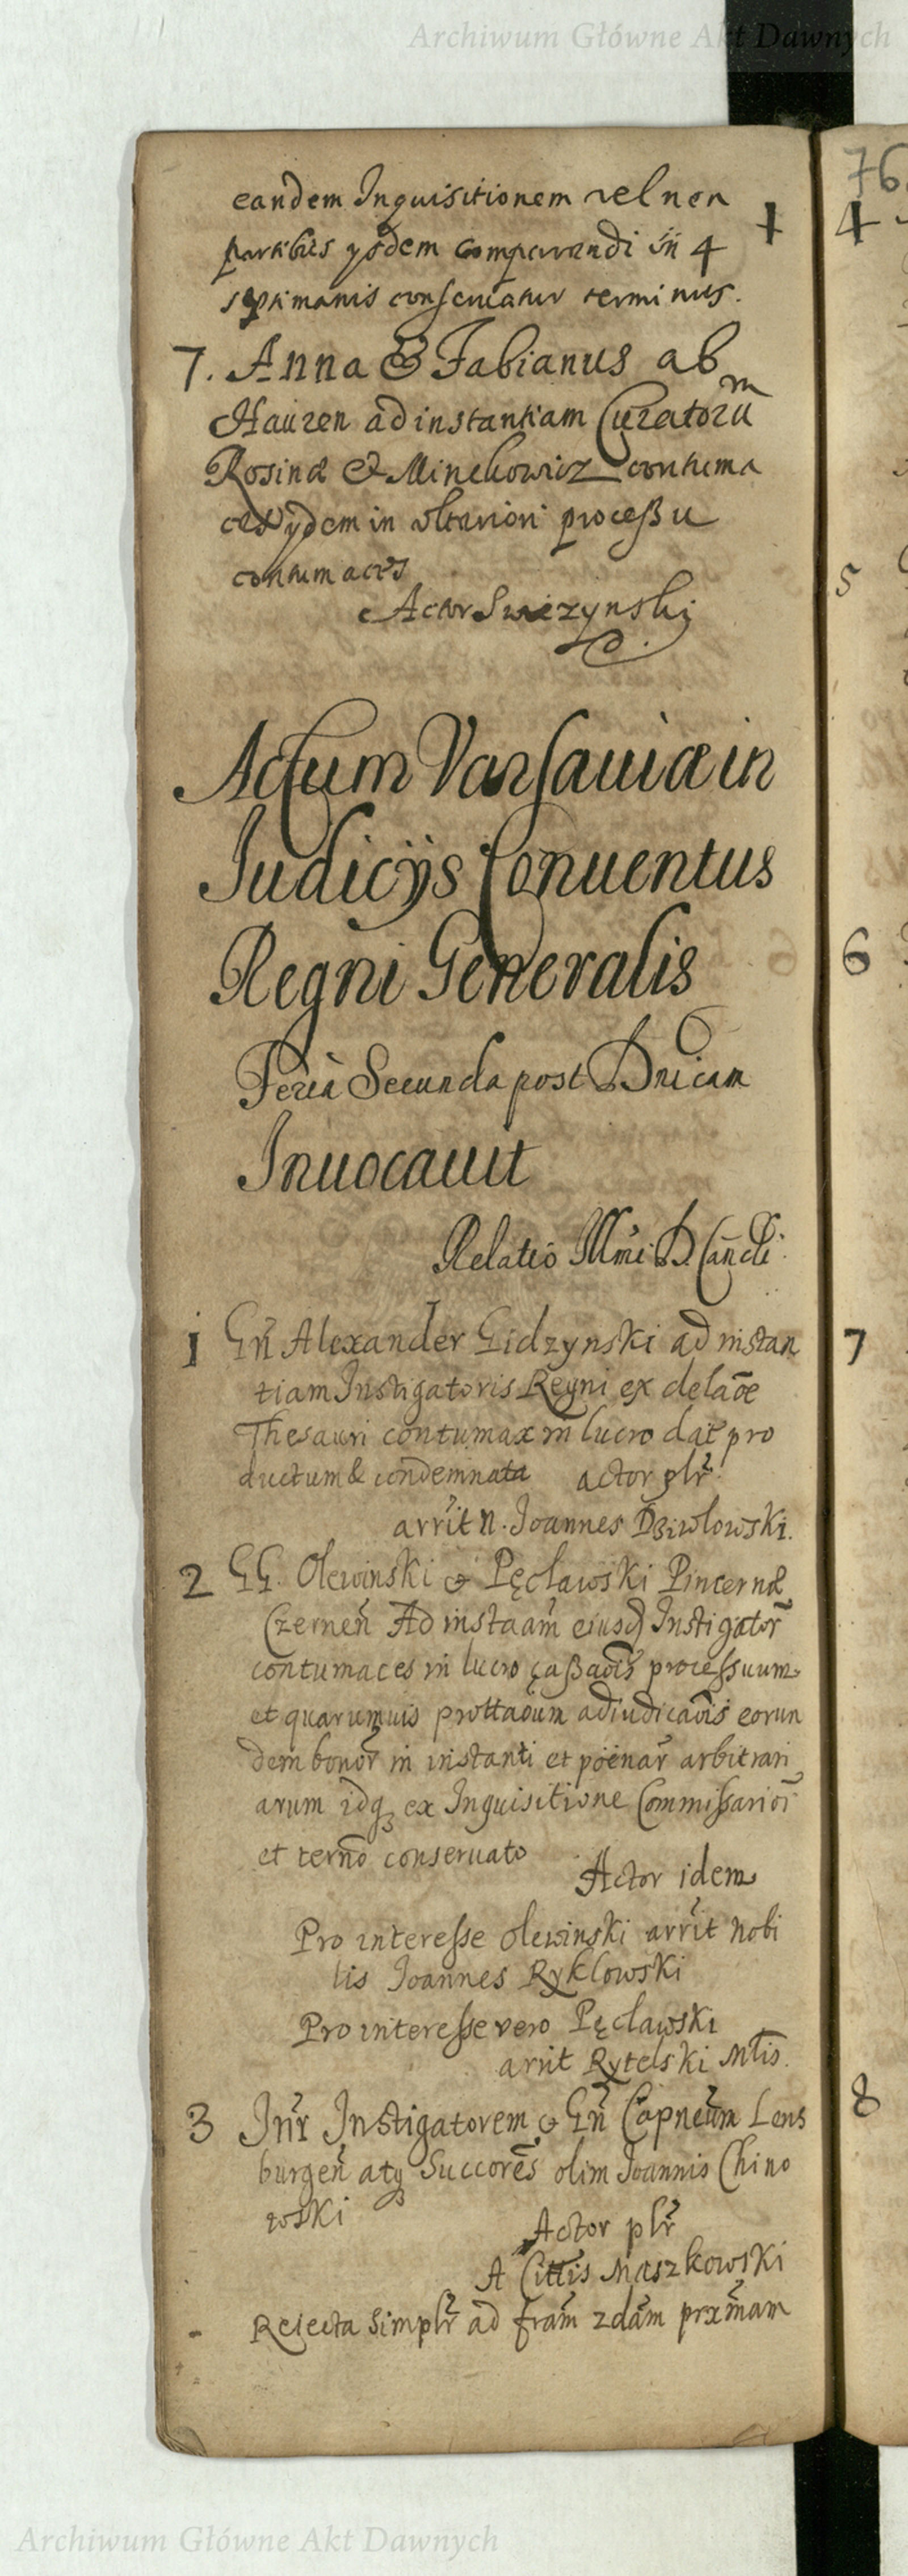 Archiwum Główne Akt Dawnych
eandem Inquisitionem vel non
partibus ijsdem comparendi in 4
septimanis conseruatur terminus.
7. Anna & Fabianus ab
Hauzen ad instantiam Curatorū
Rosinæ & Minekowicz contuma
ces ijdem in vlteriori proceßu
contumaces
Actor Swiezynski
Actum Varsauiæ in
Judicijs Conuentus
Regni Generalis
Feria Secunda post Dnicam
Inuocauit
Relatio Illmi D. Cancli
1 Gñ Alexander Gidzynski ad instan
tiam Instigatoris Regni ex delaōe
Thesauri contumax in lucro dat pro
ductum & condemnata actor plr
arrit N. Joannes Dziwlowski.
2 GG. Olewinski & Pęcławski Pincernæ
Czerneñ Ad instaam eiusd Instigator
contumaces in lucro caßaōis processuum
et quarumuis prottaōum adiudicaōis eorun
dem bonor in instanti et poenar arbitrari
arum idq ex Inquisitione Commissarior
et terno conseruato
Actor idem
Pro interesse Olewinski arrit Nobi
lis Joannes Ryklowski
Pro interesse vero Pęclawski
arrit Rytelski Mtis.
3 Intr Instigatorem & Gñ Capneum Lens
burgeñ atq Succores olim Joannis Chino
wski
Actor plr
A Cittis Maszkowski
Reiecta simplr ad fram 2dam prxmam
76
4
5
6
7
8
Archiwum Główne Akt Dawnych